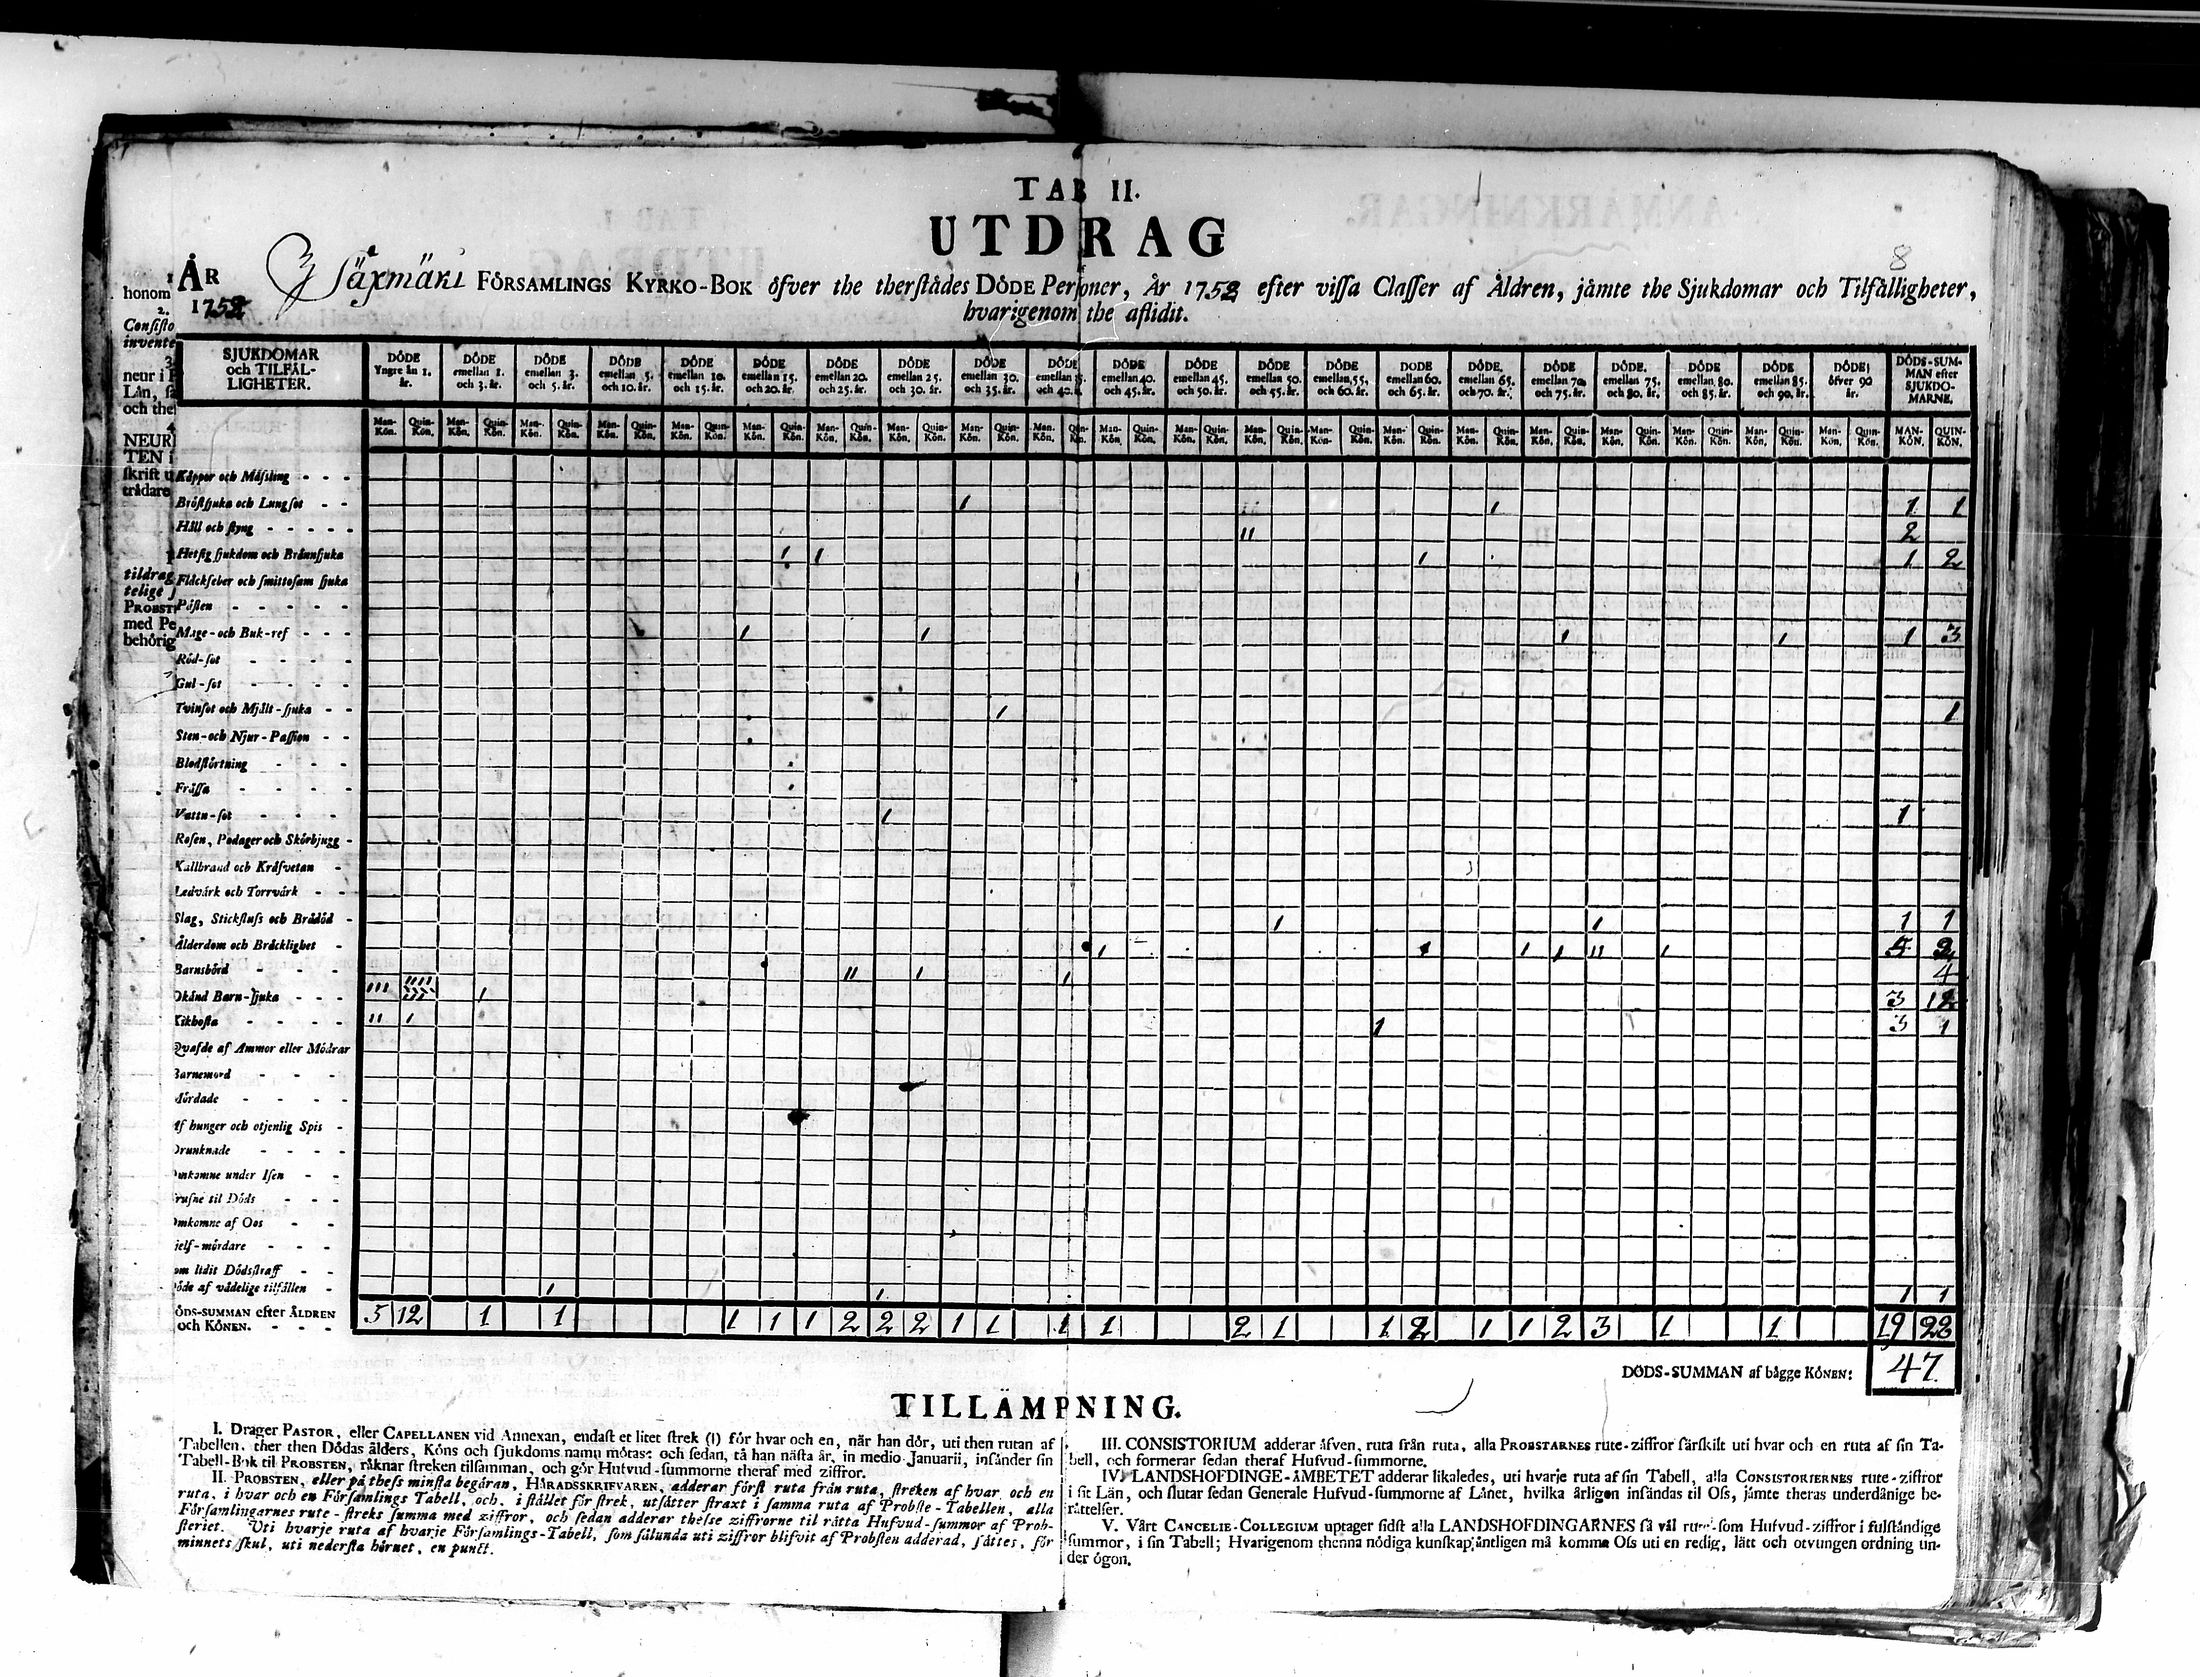 TAB II.
UTDRAG
8
ÅR 1752
Sääxmäki FÖRSAMLINGS KYRKO-BOK öfver the therstädes DÖDE Personer, År 1752 efter vissa Classer af Åldren, jämte the Sjukdomar och Tilfälligheter,
hvarigenom the aflidit.
honom
2.
Consisto
invente
3
neur i
Län, sä
och thei
4
NEUR
TEN i
skrift u
trädare
tildrag
telige
PROBST
med Pe
behörig
SJUKDOMAR och TILFÄL-LIGHETER. DÖDE Yngre än 1. år. DÖDE emellan 1. och 3. år. DÖDE emellan 3. och 5. år. DÖDE emellan 5. och 10. år. DÖDE emellan 10. och 15. år. DÖDE emellan 15. och 20. år. DÖDE emellan 20. och 25. år. DÖDE emellan 25. och 30. år. DÖDE emellan 30. och 35. år. DÖDE emellan 35. och 40. år. DÖDE emellan 40. och 45. år. DÖDE emellan 45. och 50. år. DÖDE emellan 50. och 45. år. DÖDE emellan 55. och 60. år. DÖDE emellan 60. och 65. år. DÖDE. emellan 65. och 70. år. DÖDE emellan 70. och 75. år. DÖDE. emellan 75. och 80. år. DÖDE emellan 80. och 85. år. DÖDE emellan 85. och 90. år. DÖDE öfver 90 år. DÖDS-SUM-MAN efter SJUKDO-MARNE.
Man-Kön. Quin-Kön. Man-Kön. Quin-Kön. Man-Kön. Quin-Kön. Man-Kön. Quin-Kön. Man-Kön. Quin-Kön. Man-Kön. Quin-Kön. Man-Kön. Quin-Kön. Man-Kön. Quin-Kön. Man-Kön. Quin-Kön. Man-Kön. Quin-Kön. Man-Kön. Quin-Kön. Man-Kön. Quin-Kön. Man-Kön. Quin-Kön. Man-Kön. Quin-Kön. Man-Kön. Quin-Kön. Man-Kön. Quin-Kön. Man-Kön. Quin-Kön. Man-Kön. Quin-Kön. Man-Kön. Quin-Kön. Man-Kön. Quin-Kön. Man-Kön. Quin-Kön. MAN-KÖN. QUIN-KÖN.
Kåppor och Mässling - - -
Bröstsjuka och Lungsot - - 1 1 1 1
Håll och styng - - - - - 11 2
Hetsig sjukdom och Brännsjuka 1 1 1 1 2
Fläckfeber och smittosam sjuka
Pästen - - - - -
Mage- och Buk-ref - - - 1 1 1 1 1 3
Röd-sot - - - -
Gul-sot - - - -
Tvinsot och Mjält-sjuka - - 1 1
Sten- och Njur-Passion - -
Blodstörtning - - -
Frässa - - - -
Vattu-sot - - - 1 1
Rosen, Podager och Skörbjugg -
Kallbrand och Kräfvetan -
Ledvärk och Torrvärk - -
Slag, Stickfluss och Brådöd - 1 1 1 1
Ålderdom och Bräcklighet - 1 1 1 1 11 1 5 2
Barnsbörd - - - - 11 1 1 4
Okänd Barn-sjuka - - - 111 1 3 12
Kikhosta - - - - 11 1 1 3 1
Qvafde af Ammor eller Mödrar
Barnemord - - -
Mördade - - - -
Af hunger och otjenlig Spis -
Drunknade - - - -
Omkomne under Isen - -
Frusne til Döds - - -
Omkomne af Oos - -
Sjelf-mördare - - -
Som lidit Dödsstraff - -
Döde af vådelige tilfällen - 1 1 1 1
DÖDS-SUMMAN efter ÅLDREN och KÖNEN. - - - 5 12 1 1 1 1 1 2 2 2 1 1 1 1 2 1 1 2 1 1 2 3 1 1 19 28
DÖDS-SUMMAN af bägge KÖNEN: 47.
TILLÄMPNING.
I. Drager PASTOR, eller CAPELLANEN vid Annexan, endast et litet strek (1) för hvar och en, när han dör, uti then rutan af
Tabellen, ther then Dödas ålders, Köns och sjukdoms namn mötas: och sedan, tå han nästa år, in medio Januarii, insänder sin
Tabell-Bok til PROBSTEN, räknar streken tilsamman, och gör Hufvud-summorne theraf med ziffror.
II. PROBSTEN, eller på thess minsta begäran, HÄRADSSKRIFVAREN, adderar först ruta från ruta, streken af hvar och en
ruta, i hvar och en Församlings Tabell, och, i stället för strek, utsätter straxt i samma ruta af Probste-Tabellen, alla
Församlingarnes rute-streks summa med ziffror, och sedan adderar thesse ziffrorne til rätta Hufvud-summor af Prob-
steriet. Uti hvarje ruta af hvarje Församlings-Tabell, som sålunda uti ziffror blifvit af Probsten adderad, sättes, för
minnets skul, uti nedersta hörnet, en punct.
III. CONSISTORIUM adderar äfven, ruta från ruta, alla PROBSTARNES rute-ziffror särskilt uti hvar och en ruta af sin Ta-
bell, och formerar sedan theraf Hufvud-summorne.
IV. LANDSHOFDINGE-ÄMBETET adderar likaledes, uti hvarje ruta af sin Tabell, alla CONSISTORIERNES rute-ziffror
i sit Län, och slutar sedan Generale Hufvud-summorne af Länet, hvilka årligen insändas til Oss, jämte theras underdånige be-
rättelser.
V. Vårt CANCELIE-COLLEGIUM uptager sidst alla LANDSHOFDINGARNES så väl rute-som Hufvud-ziffror i fulständige
summor, i sin Tabell; Hvarigenom thenna nödiga kunskap äntligen må komma Oss uti en redig, lätt och otvungen ordning un-
der ögon.